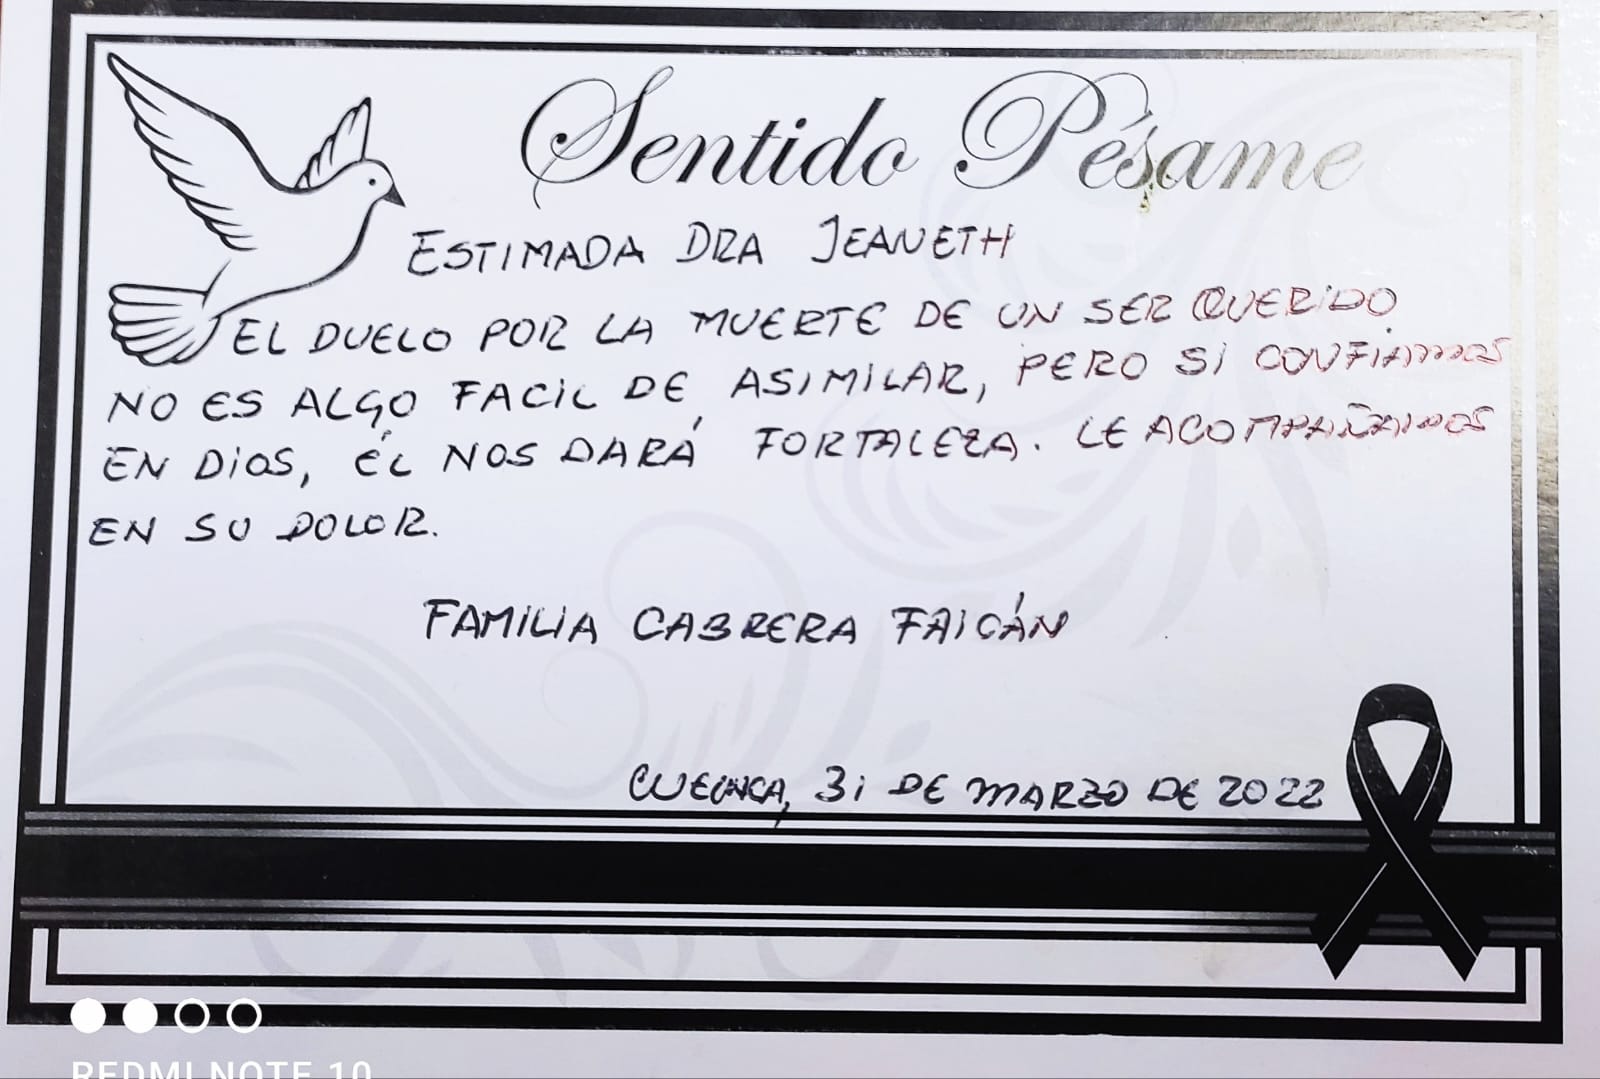 Sentido Pésame
ESTIMADA DRA JEANETH
EL DUELO POR LA MUERTE DE UN SER QUERIDO
NO ES ALGO FACIL DE ASIMILAR, PERO SI CONFIAMOS
EN DIOS, ÉL NOS DARÁ FORTALEZA. LE ACOMPAÑAMOS
EN SU DOLOR.
FAMILIA CABRERA FAICÁN
CUENCA, 31 DE MARZO DE 2022
REDMI NOTE 10